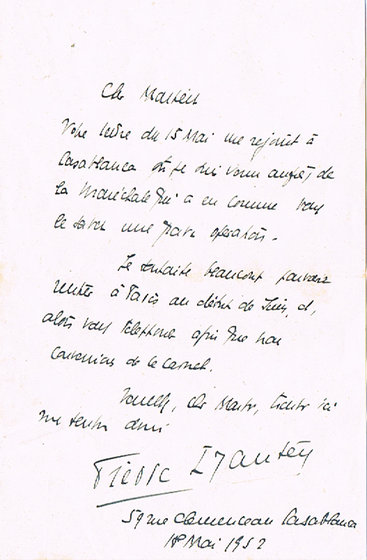 Cher Monsieur
Votre lettre du 15 Mai me rejoint à
Casablanca où je suis venu auprès de
la Maréchale qui a eu comme vous
le savez une grave opération.
Je souhaite beaucoup pouvoir
rentrer à Paris au début de Juin, et,
alors vous téléphoner afin que nous
convenions de le
Veuillez, cher
me
Pierre
59 rue Clemenceau Casablanca
18 Mai 1952